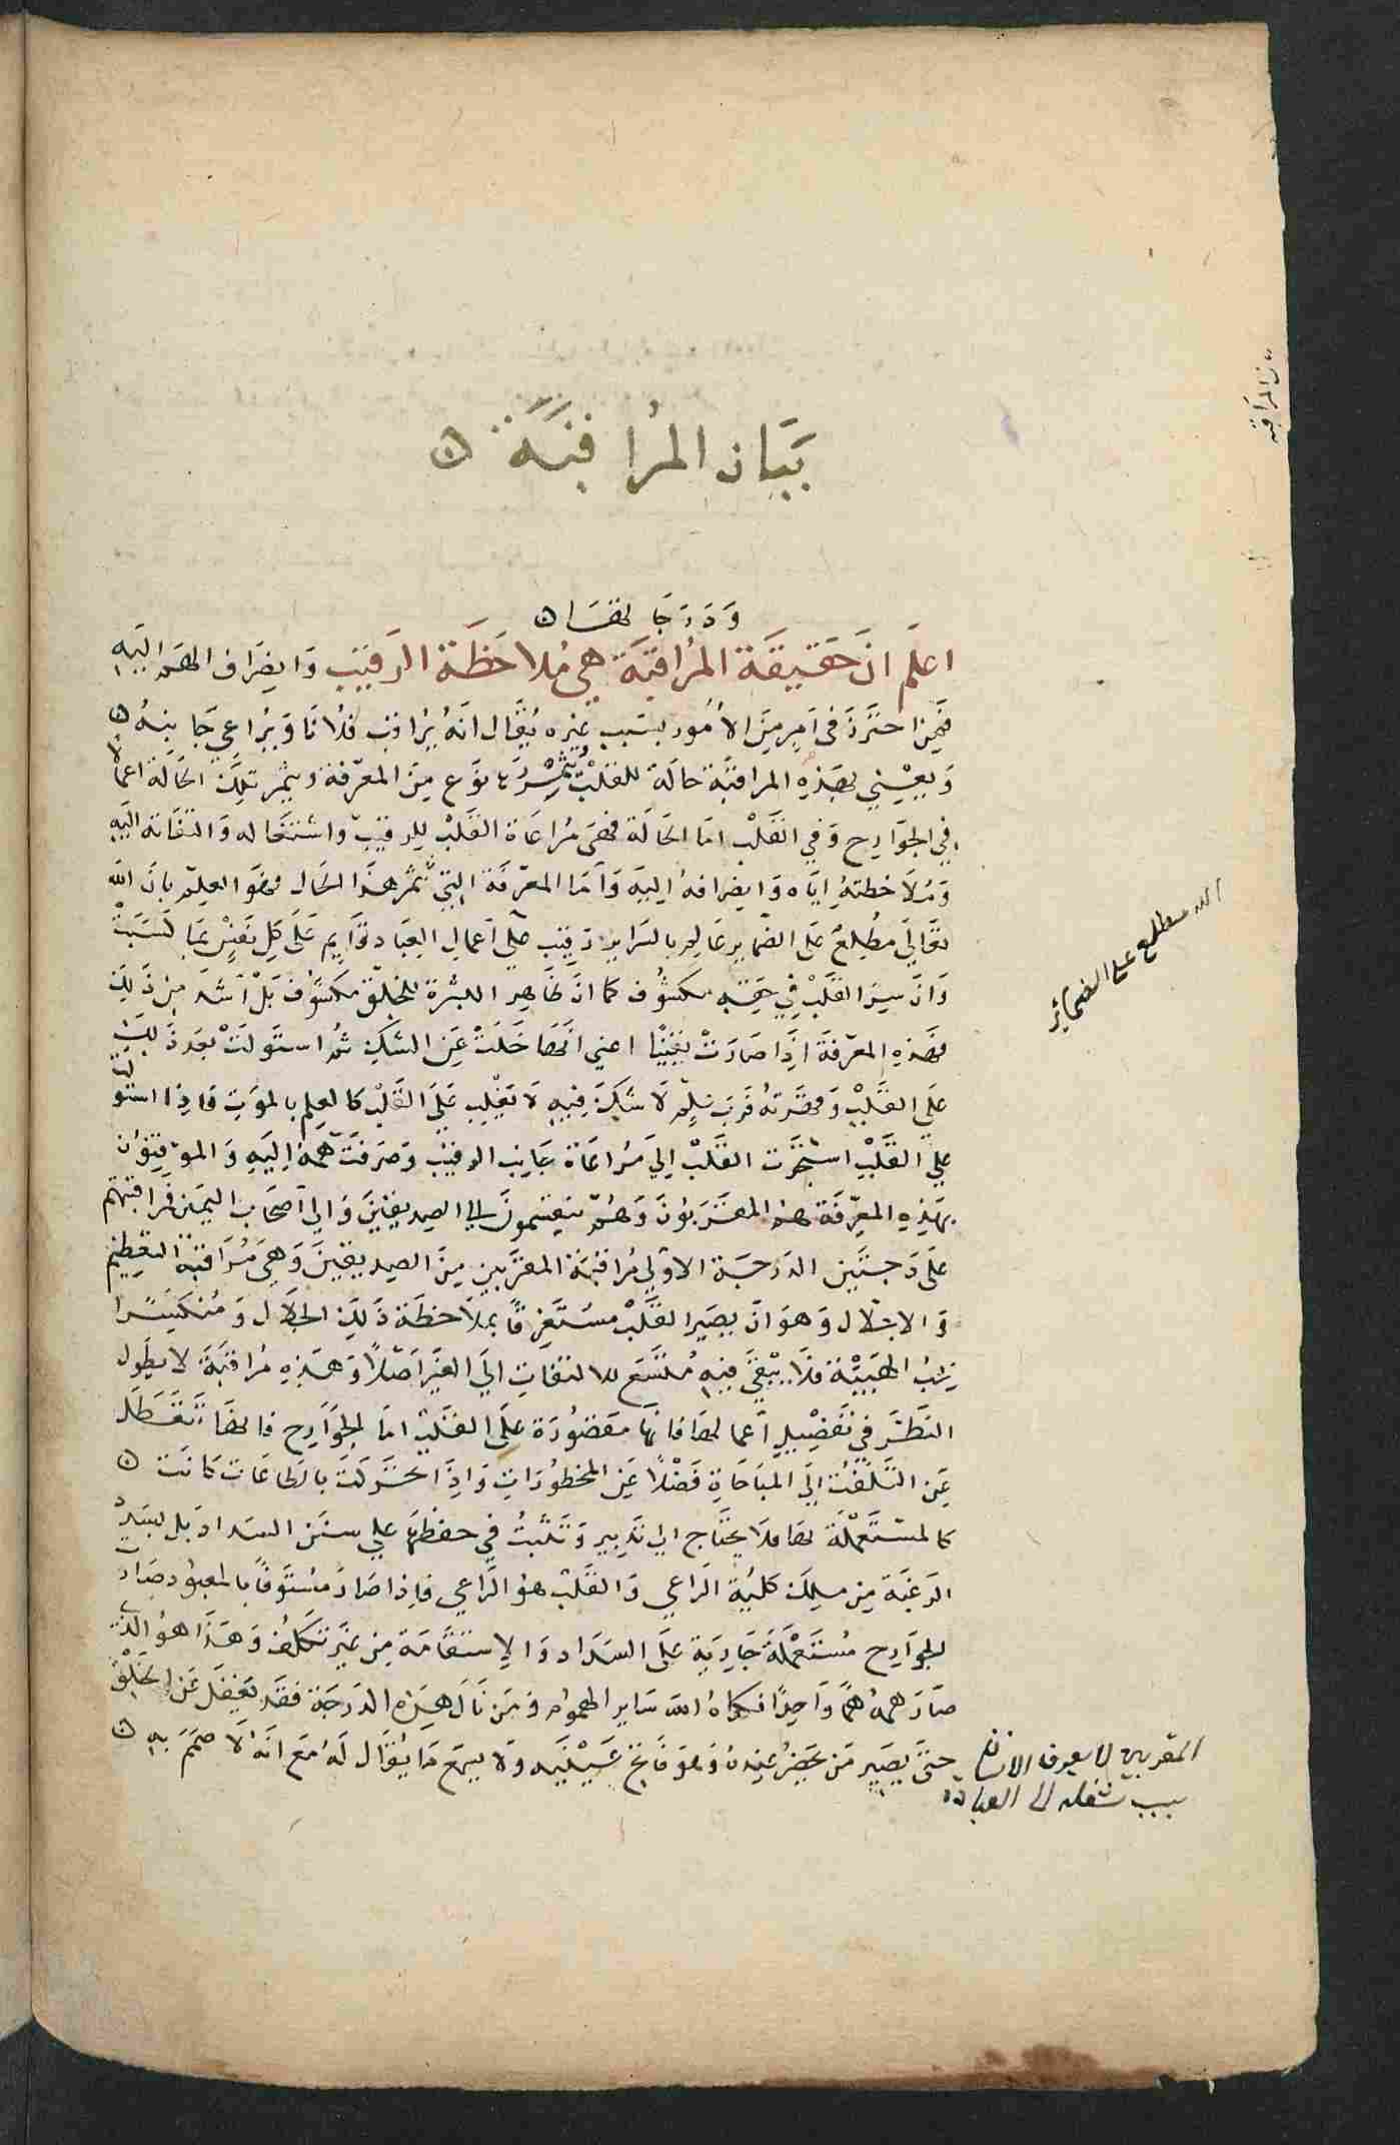 بيان المراقبة
ودرجاتها
اعلم ان حقيقة المراقبة هي ملاحظة الرقيب وانصراف الهم اليه
فمن احترز في امر من الأمور بسبب غيره يقال انه يراقب فلانا ويراعي جانبه
ويعني بهذه المراقبة حالة للقلب يثمرها نوع من المعرفة ويثمر تلك الحالة اعمالا
في الجوارح وفي القلب اما الحالة فهي مراعاة القلب للرقيب واشتغاله والتفاته اليه
وملاحظته اياه وانصرافه اليه واما المعرفة التي تثمر هذا الحال فهو العلم بان الله
تعالى مطلع على الضماير عالم بالسراير رقيب على اعمال العباد قايم على كل نفس بما كسبت
وان سر القلب في حقه مكشوف كما ان ظاهر البشرة للخلق مكشوف بل اشد من ذلك
فهذه المعرفة اذا صارت يقينا اعني انها خلت عن الشك ثم استولت بعد ذلك
على القلب وقهرته فرب علم لا شك فيه لا يغلب على القلب كالعلم بالموت فاذا استولت
على القلب استجرت القلب الى مراعاة جانب الرقيب وصرفت همه اليه والموقنون
بهذه المعرفة هم المقربون وهم ينقسمون الى الصديقين والى اصحاب اليمين فمراقبتهم
على درجتين الدرجة الاولى مراقبة المقربين من الصديقين وهي مراقبة التعظيم
والاجلال وهو ان يصير القلب مستغرقا بملاحظة ذلك الجلال ومنكسرا
تحت الهيبة فلا يبقى فيه متسع للالتفات الى الغير اصلا وهذه مراقبة لا يطول
النظر في تفضيل اعمالها فانها مقصورة على القلب اما الجوارح فانها تتعطل
عن التلفت الى المباحات فضلا عن المحظورات واذا تحركت بالطاعات كانت
كالمستعملة بها فلا يحتاج الى تدبير وتثبت في حفظها على سنن السداد بل يسدد
الرعية من ملك كلية الراعي والقلب هو الراعي فاذا صار مستوفا بالمعبود صارت
الجوارح مستعملة جارية على السداد والاستقامة من غير تكلف وهذا هو الذي
صار همه هما واحدا فكفاه الله ساير الهموم ومن نال هذه الدرجة فقد يغفل عن الخلق
حتى يصير من يحضر عنده وهو فاتح عينيه ولا يسمع ما يقال له مع انه لا صمم به
في المراقبة
الله مطلع على الضمائر
المقربين لا يعرف الانسان
بسبب شغله الى العبادة